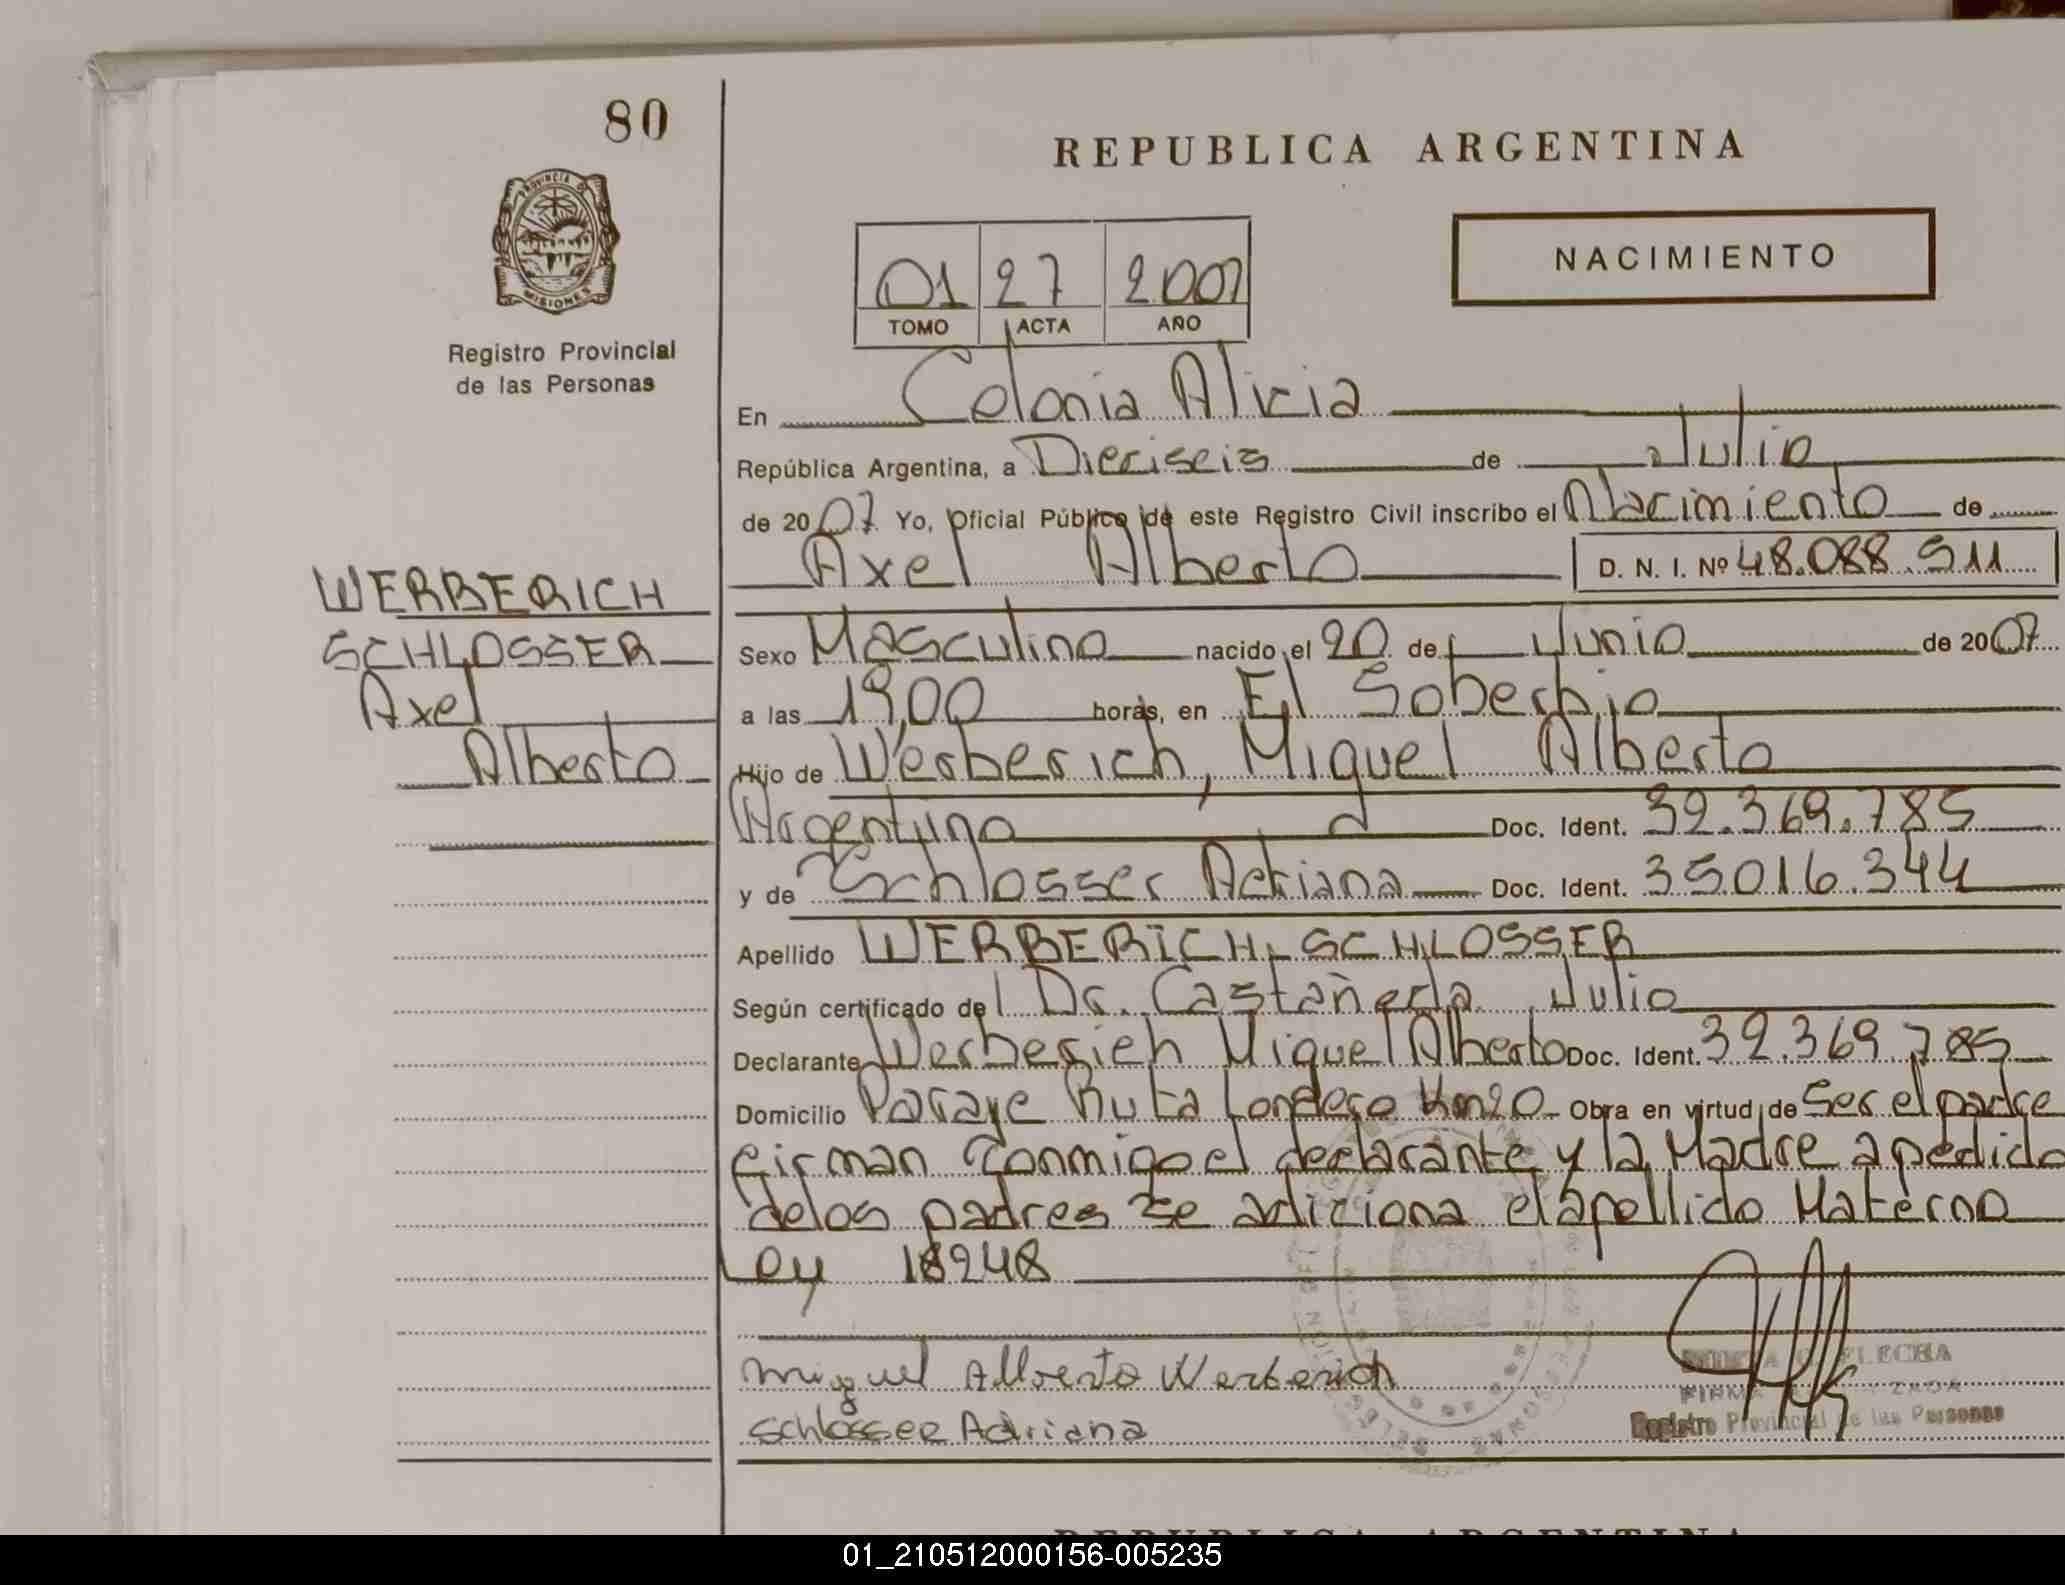 80
REPUBLICA ARGENTINA
PROVINCIA DE
MISIONES
Registro Provincial
de las Personas
NACIMIENTO
01 27 2.007
TOMO ACTA AÑO
En Colonia Alicia
República Argentina, a Dieciseis de Julio
de 2007. Yo, Oficial Público de este Registro Civil inscribo el Nacimiento de
Axel Alberto D. N. I. Nº 48.088.911
WERBERICH
SCHLOSSER
Axel
Alberto
Sexo Masculino nacido el 20 de Junio de 2007
a las 19,00 horas, en El Soberbio
Hijo de Werberich, Miguel Alberto
Argentino Doc. Ident. 32.369.785
y de Schlosser Adriana Doc. Ident. 35016.344
Apellido WERBERICH SCHLOSSER
Según certificado del Dr. Castañeda Julio
Declarante Werberich Miguel Alberto Doc. Ident. 32.369.785
Domicilio Paraje Ruta Londero Km20 Obra en virtud de Ser el padre
firman conmigo el declarante y la Madre a pedido
de los padres se adiciona el apellido Materno
Ley 18248
Miguel Alberto Werberich
Schlosser Adriana
FLECHA
FIRMA
Registro Provincial de las Personas
REPUBLICA ARGENTINA
01_210512000156-005235